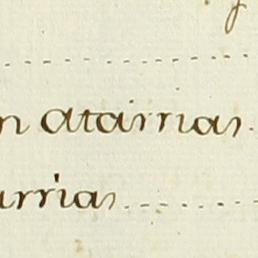 n atarrias.
arrias